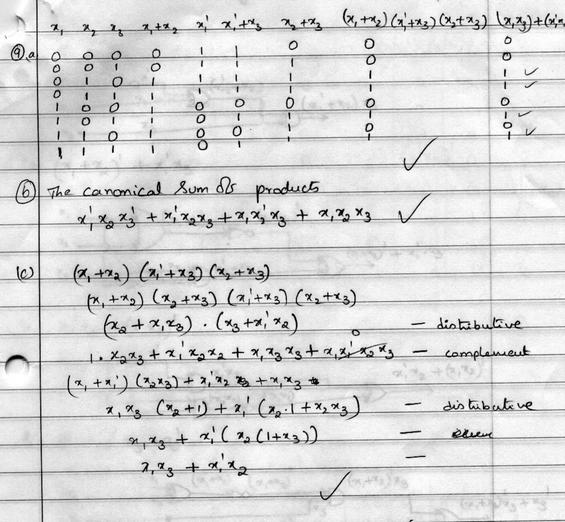 x₁ x₂ x₃ x₁+x₂ x₁' x₁'+x₃ x₂+x₃ (x₁+x₂)(x₁'+x₃)(x₂+x₃) (x₁x₃)+(x₁'x₂
9) a 0 0 0 0 1 1 0 0 0
0 0 1 0 1 1 1 0 0
0 1 0 1 1 1 1 1 1 ✓
0 1 1 1 1 1 1 1 1 ✓
1 0 0 1 0 0 0 0 0
1 0 1 1 0 1 1 1 1 ✓
1 1 0 1 0 0 1 0 0
1 1 1 1 0 1 1 1 1 ✓
✓
(b) The canonical sum of products
x₁'x₂x₃' + x₁'x₂x₃ + x₁x₂'x₃ + x₁x₂x₃ ✓
(c) (x₁+x₂) (x₁'+x₃) (x₂+x₃)
(x₁+x₂) (x₂+x₃) (x₁'+x₃) (x₂+x₃)
(x₂+x₁x₃) . (x₃+x₁'x₂) — distributive
1. x₂x₃ + x₁'x₂x₂ + x₁x₃x₃ + x₁x₁'x₂x₃ 0 — complement
(x₁+x₁') (x₂x₃) + x₁'x₂ + x₁x₃
x₁x₃ (x₂+1) + x₁' (x₂.1 + x₂x₃) — distributive
x₁x₃ + x₁' (x₂(1+x₃)) —
x₁x₃ + x₁'x₂ —
✓